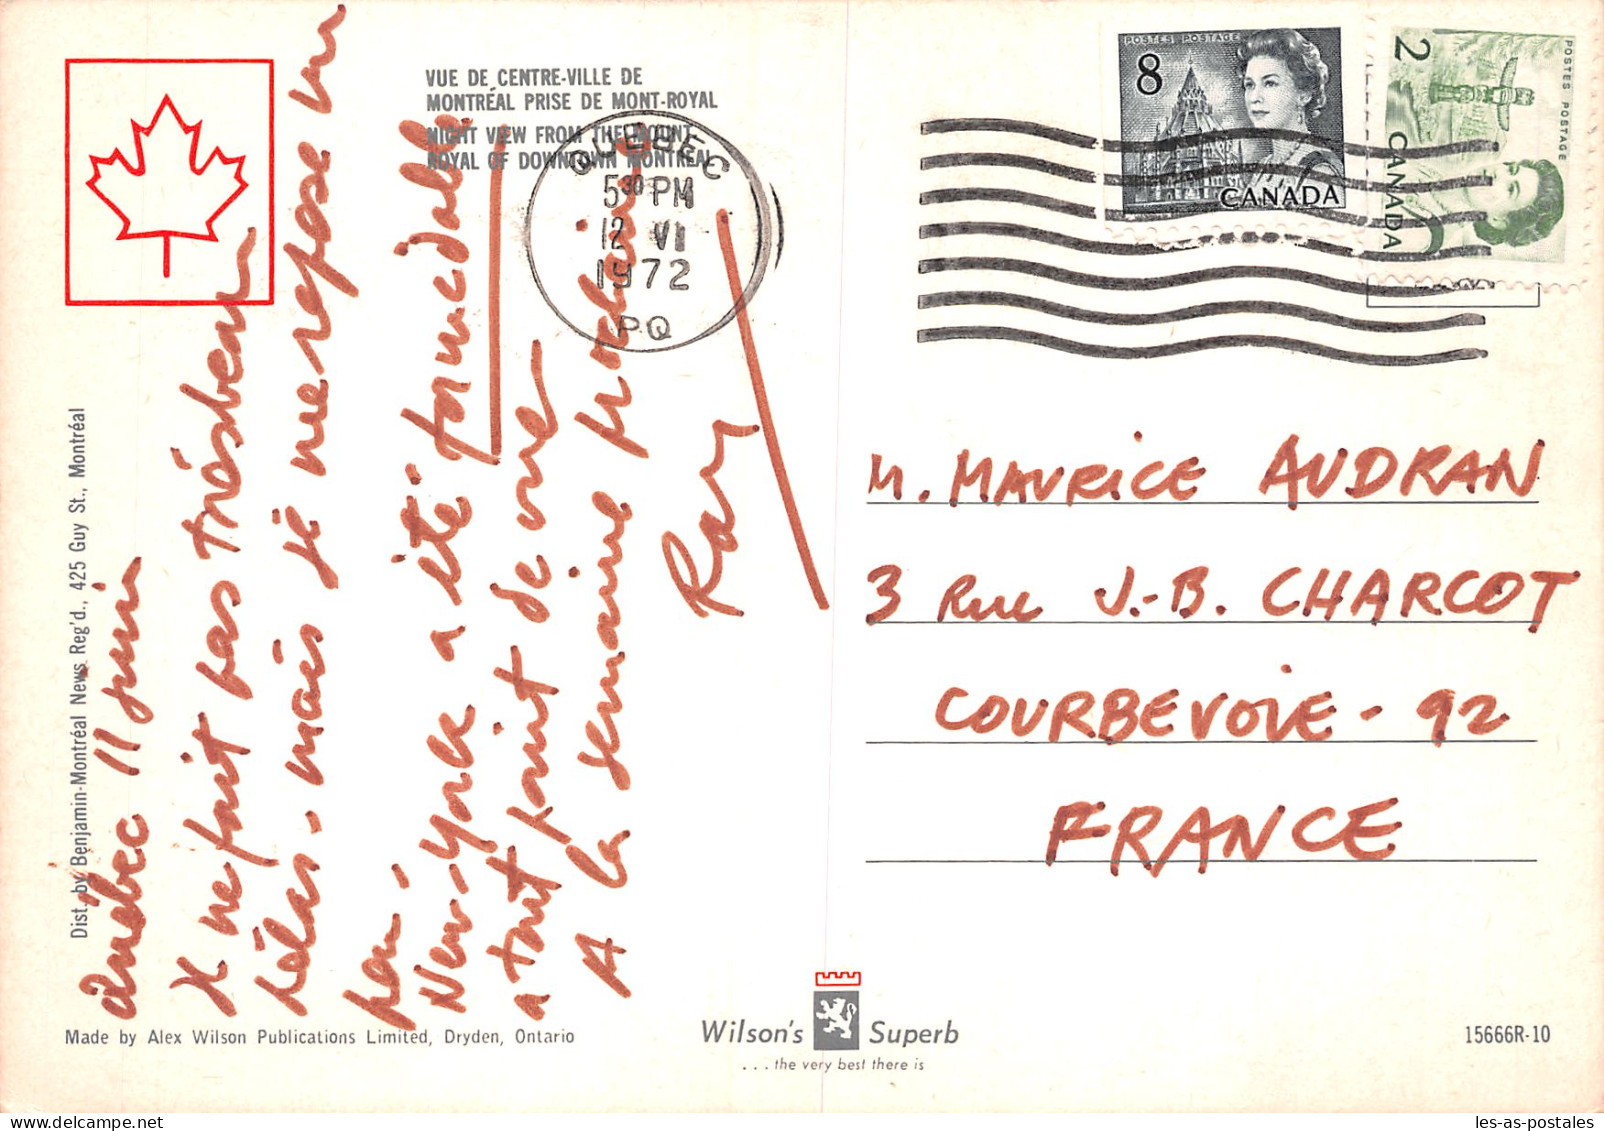 VUE DE CENTRE-VILLE DE
MONTRÉAL PRISE DE MONT-ROYAL
NIGHT VIEW FROM THE MOUNT
ROYAL OF DOWNTOWN MONTREAL
QUEBEC
5³⁰ PM
12 VI
1972
PQ
POSTES POSTAGE
8
CANADA
POSTES POSTAGE
2
CANADA
Dist. by Benjamin-Montréal News Reg'd., 425 Guy St., Montréal
Québec 11 juin
Il ne fait pas très beau
hélas. mais je me repose un
peu.
New-York a été formidable
a tout point de vue
A la semaine prochaine
M. MAURICE AUDRAN
3 Rue J.-B. CHARCOT
COURBEVOIE - 92
FRANCE
Made by Alex Wilson Publications Limited, Dryden, Ontario
Wilson's Superb
...the very best there is
15666R-10
les-as-postales